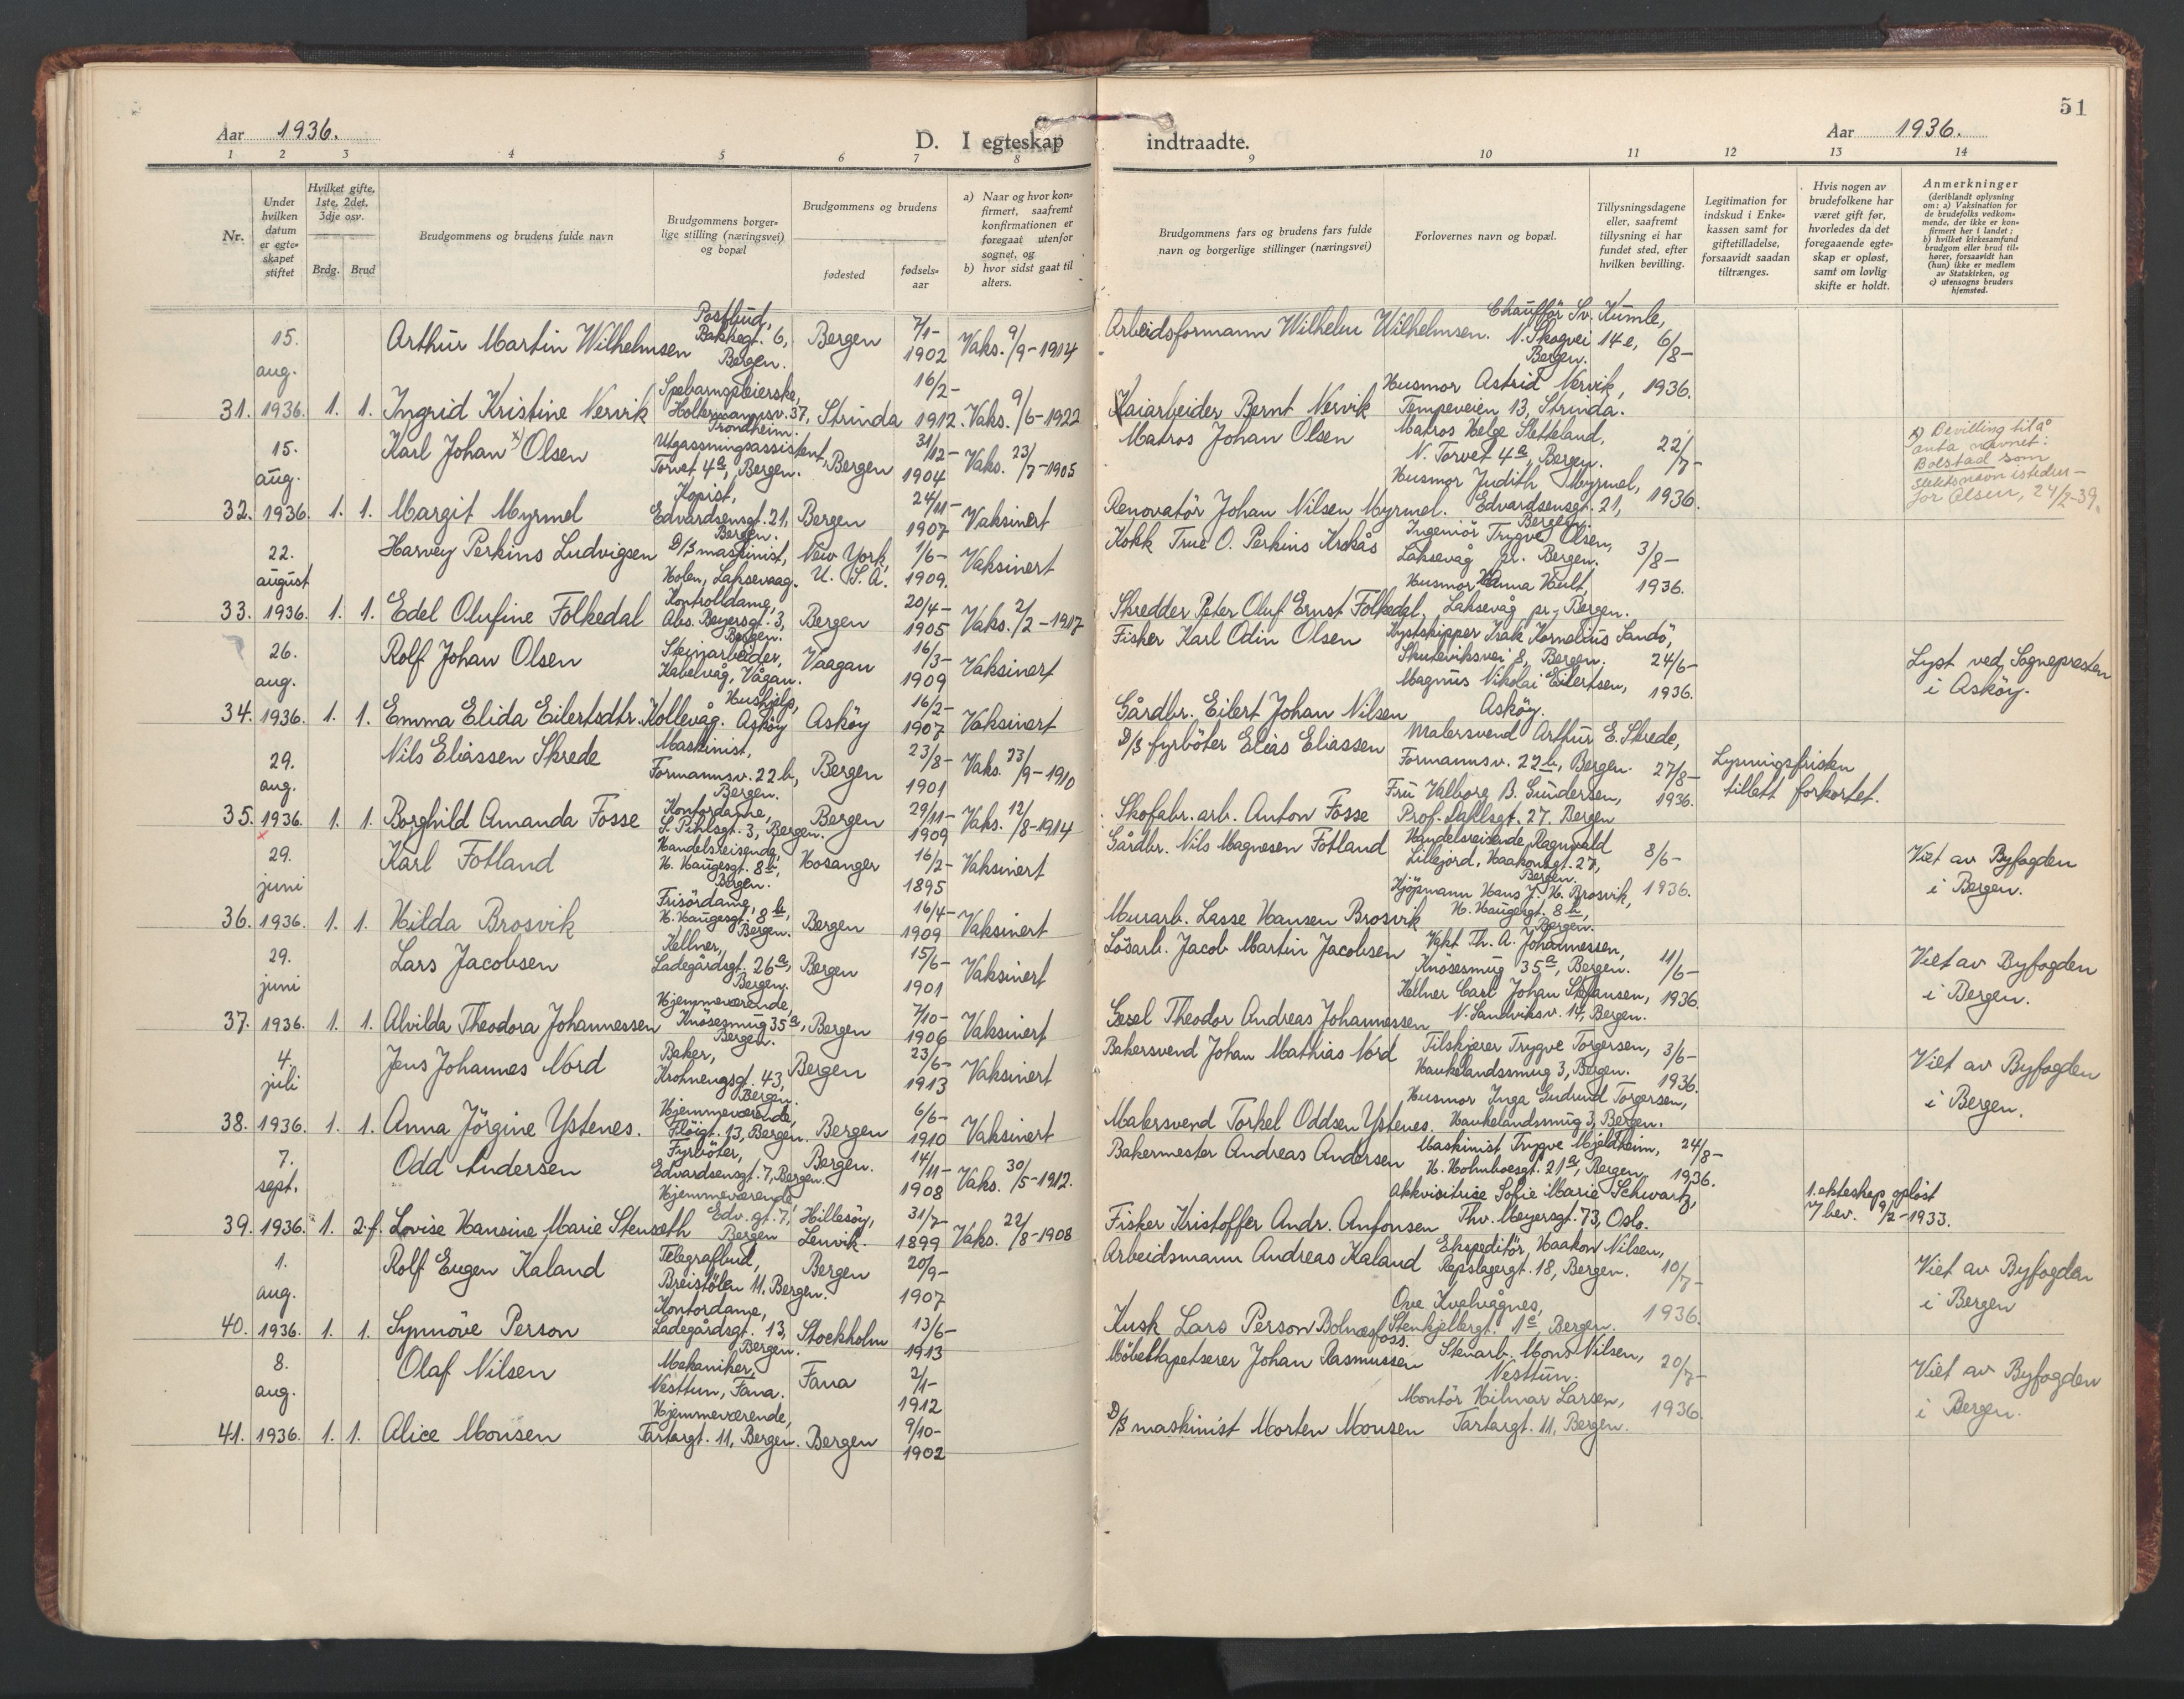 51
Aar 1936.
D. I egteskap indtraadte.
Aar 1936.
1 2 3 4 5 6 7 8 9 10 11 12 13 14
Nr.
Under hvilken datum er egteskapet stiftet
Hvilket gifte, 1ste, 2det, 3dje osv.
Brdg. Brud
Brudgommens og brudens fulde navn
Brudgommens borgerlige stilling (næringsvei) og bopæl
Brudgommens og brudens
fødested
fødselsaar
a) Naar og hvor konfirmert, saafremt konfirmationen er foregaat utenfor sognet, og
b) hvor sidst gaat til alters.
Brudgommens fars og brudens fars fulde navn og borgerlige stillinger (næringsvei)
Forlovernes navn og bopæl.
Tillysningsdagene eller, saafremt tillysning ei har fundet sted, efter hvilken bevilling.
Legitimation for indskud i Enkekassen samt for giftetilladelse, forsaavidt saadan tiltrænges.
Hvis nogen av brudefolkene har været gift før, hvorledes da det foregaaende egteskap er opløst, samt om lovlig skifte er holdt.
Anmerkninger (deriblandt oplysning om: a) Vaksination for de brudefolks vedkommende, der ikke er konfirmert her i landet; b) hvilket kirkesamfund brudgom eller brud tilhører, forsaavidt han (hun) ikke er medlem av Statskirken, og c) utensogns bruders hjemsted.
31. 15. aug. 1936. 1. 1.
Arthur Martin Wilhelmsen Postbud, Bakkegt. 6, Bergen. Bergen 7/1-1902 Vaks. 9/9-1914
Arbeidsformann Wilhelm Wilhelmsen. Chauffør Sv. Kumle, N. Skogvei 14e, Bergen. 6/8-1936.
Ingrid Kristine Nervik Spebarnspleierske, Trondheim. Strinda 16/2-1912. Vaks. 9/6-1922
Kaiarbeider Bernt Nervik Husmor Astrid Nervik, Tempeveien 13, Strinda.
32. 15. aug. 1936. 1. 1.
Karl Johan x) Olsen Utgassningsassistent, Torvet 4a, Bergen. Bergen 31/12-1904 Vaks. 23/7-1905
Matros Johan Olsen Matros Helge Sletteland, N. Torvet 4a, Bergen. 22/7-1936.
x) Bevilling til å anta navnet: Bolstad som slektsnavn istedenfor Olsen, 24/2-39.
Margit Myrmel Kopist, Edvardsensgt. 21, Bergen. Bergen 24/11-1907 Vaksinert
Renovatör Johan Nilsen Myrmel. Husmor Judith Myrmel, Edvardsensgt. 21, Bergen.
33. 22. august 1936. 1. 1.
Harvey Perkins Ludvigsen D/S maskinist, Holen, Laksevaag. New York, U. S. A. 1/6-1909. Vaksinert
Kokk True O. Perkins Ingeniör Trygve Olsen, Laksevåg pr. Bergen. 3/8-1936.
Edel Olufine Folkedal Kontrolldame, Abs. Beyersgt. 3, Bergen. Bergen 20/4-1905 Vaks. 2/2-1917
Skredder Peter Oluf Ernst Folkedal. Husmor Anna Hult, Laksevåg pr. Bergen.
34. 26. aug. 1936. 1. 1.
Rolf Johan Olsen Steinarbeider, Kabelvåg, Vågan. Vaagan 16/3-1909 Vaksinert
Fisker Karl Odin Olsen Kystskipper Isak Kornelius Sandö, Skuteviksvei 8, Bergen. 24/6-1936.
Lyst ved Sognepresten i Asköy.
Emma Elida Eilertsdtr. Hushjelp, Kollevåg. Asköy Asköy 16/2-1907 Vaksinert
Gårdbr. Eilert Johan Nilsen Magnus Nikolai Eilertsen, Asköy.
35. 29. aug. 1936. 1. 1.
x
Nils Eliassen Skrede Maskinist, Formannsv. 22b, Bergen. Bergen 23/8-1901 Vaks. 23/9-1910
D/S fyrböter Elias Eliassen Malersvend Arthur E. Skrede, Formannsv. 22b, Bergen. 27/8-1936. Lysningsfristen tillatt forkortet.
Borghild Amanda Fosse Kontordame, S. Pihlsgt. 3, Bergen. Bergen 29/11-1909 Vaks. 12/8-1914
Skofabr. arb. Anton Fosse Fru Valborg B. Gundersen, Prof. Dahlsgt. 27. Bergen
36. 29. juni 1936. 1. 1.
Karl Fotland Handelsreisende, H. Haugesgt. 8b, Bergen. Hosanger 16/2-1895 Vaksinert
Gårdbr. Nils Magnesen Fotland Handelsreisende Ragnvald Lillejord, Haakonsgt. 27, Bergen. 8/6-1936.
Viet av Byfogden i Bergen.
Hilda Brosvik Frisördame, H. Haugesgt. 8b, Bergen. Bergen 16/4-1909 Vaksinert
Murarb. Lasse Hansen Brosvik Kjöpmann Hans J. H. Brosvik, H. Haugesgt. 8b, Bergen.
37. 29. juni 1936. 1. 1.
Lars Jacobsen Kellner, Ladegårdsgt. 26a, Bergen. Bergen 15/6-1901 Vaksinert
Lösarb. Jacob Martin Jacobsen Vakt Th. A. Johannessen, Knösesmug 35a, Bergen. 11/6-1936.
Viet av Byfogden i Bergen.
Alvilda Theodora Johannessen Hjemmeværende, Knösesmug 35a, Bergen. Bergen 7/10-1906 Vaksinert
Theodor Andreas Johannessen Kellner Carl Johan Stefansen, N. Sandviksv. 14, Bergen.
38. 4. juli 1936. 1. 1.
Jens Johannes Nord Baker, Krohnengsgt. 43, Bergen. Bergen 23/6-1913 Vaksinert
Bakersvend Johan Mathias Nord Tilskjærer Trygve Torgersen, Haukelandssmug 3, Bergen. 3/6-1936.
Viet av Byfogden i Bergen.
Anna Jörgine Ystenes. Hjemmeværende, Flöigt. 13, Bergen. Bergen 6/6-1910 Vaksinert
Malersvend Torkel Oddsen Ystenes. Husmor Inga Gudrund Torgersen, Haukelandssmug 3, Bergen.
39. 7. sept. 1936. 1. 2.f.
Odd Andersen Fyrböter, Edvardsensgt. 7, Bergen. Bergen. 14/11-1908 Vaks. 30/5-1912.
Bakermester Andreas Andersen Maskinist Trygve Mjeldheim, H. Holmboesgt. 21a, Bergen. 24/8-1936.
Lovise Hansine Marie Stensæth Hjemmeværende, Edv. gt. 7, Bergen Hillesöy, Lenvik. 31/7-1899 Vaks. 22/8-1908
Fisker Kristoffer Andr. Anfonsen Akkvisitrise Sofie Marie Schwartz, Thv. Meyersgt. 73, Oslo.
1. ekteskap oplöst 7 bev. 9/2-1933.
40. 1. aug. 1936. 1. 1.
Rolf Eugen Kaland Telegrafbud, Breistölen 11, Bergen. Bergen 20/9-1907
Arbeidsmann Andreas Kaland Ekspeditör, Haakon Nilsen, Repslagergt. 18, Bergen. 10/7-1936.
Viet av Byfogden i Bergen
Synnöve Person Kontordame, Ladegårdsgt. 13, Bergen. Stockholm 13/6-1913
Kusk Lars Person Bolnæsfoss. Ove Kvalvågnes, Stenkjellergt. 1e, Bergen.
41. 8. aug. 1936. 1. 1.
Olaf Nilsen Mekaniker, Nesttun, Fana. Fana 2/1-1912
Möbeltapetserer Johan Rasmussen Stenarb. Mons Nilsen, Nesttun. 20/7-1936.
Viet av Byfogden i Bergen.
Alice Monsen Hjemmeværende, Tartargt. 11, Bergen. Bergen 9/10-1902
D/S maskinist Morten Monsen Montör Hilmar Larsen, Tartargt. 11, Bergen.